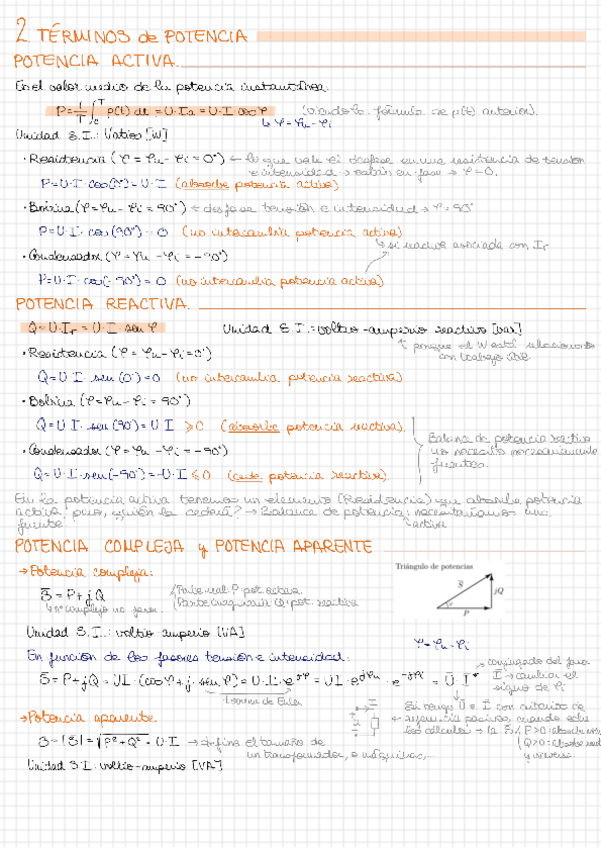 2 TÉRMINOS de POTENCIA
POTENCIA ACTIVA.
Es el valor medio de la potencia instantánea.
P = 1/T ∫₀ᵀ p(t) dt = U·Ia = U·I cos φ (viendo la fórmula de p(t) anterior).
↳ φ = φu - φi
Unidad S.I.: Vatios [W]
· Resistencia (φ = φu - φi = 0°) ← lo que vale el desfase en una resistencia de tensión
e intensidad → están en fase → φ = 0.
P = U·I·cos(0°) = U·I (absorbe potencia activa)
· Bobina (φ = φu - φi = 90°) ← desfase tensión e intensidad → φ = 90°
P = U·I·cos(90°) = 0 (no intercambia potencia activa)
↳ si reactiva asociada con Ir
· Condensador (φ = φu - φi = -90°)
P = U·I·cos(-90°) = 0 (no intercambia potencia activa)
POTENCIA REACTIVA.
Q = U·Ir = U·I·sen φ Unidad S.I.: voltio-amperio reactivo [var]
↑ porque el W está relacionado
con trabajo útil
· Resistencia (φ = φu - φi = 0°)
Q = U·I·sen(0°) = 0 (no intercambia potencia reactiva)
· Bobina (φ = φu - φi = 90°)
Q = U·I·sen(90°) = U·I ≥ 0 (absorbe potencia reactiva).
· Condensador (φ = φu - φi = -90°)
Q = U·I·sen(-90°) = -U·I ≤ 0 (cede potencia reactiva).
Balance de potencia reactiva
no necesita necesariamente
fuentes.
En la potencia activa tenemos un elemento (Resistencia) que absorbe potencia
activa pero, ¿quién la cederá? → Balance de potencia: necesitaríamos una
fuente ↳ activa
POTENCIA COMPLEJA y POTENCIA APARENTE
→ Potencia compleja: Triángulo de potencias
S̄ = P + jQ Parte real P: pot. activa
↳ nº complejo no fasor. Parte imaginaria Q: pot. reactiva
S̄ jQ
φ P
Unidad S.I.: voltio-amperio [VA]
φ = φu - φi
En función de los fasores tensión e intensidad:
conjugado del fasor
Ī → cambiar el
signo de φi
S̄ = P + jQ = UI·(cos φ + j·sen φ) = U·I·e^jφ = UI·e^jφu·e^-jφi = Ū·Ī*
Teorema de Euler
→ Potencia aparente.
Si tengo Ū e Ī con criterio de
referencia pasivos, cuando
los cálculos → la S̄
P > 0
Q > 0
y viceversa
S = |S̄| = √(P² + Q²) = U·I → define el tamaño de
un transformador, o máquinas,...
Unidad S.I: voltio-amperio [VA]